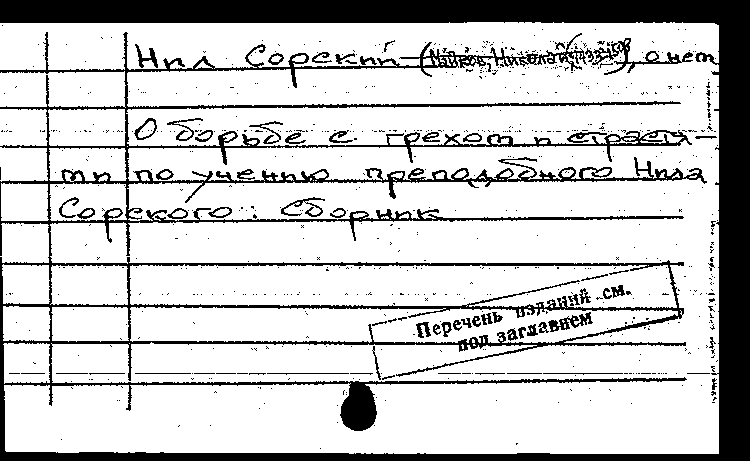 Нил Сорский (Майков, Николай; 1433-1508), о нем
О борьбе с грехом и страстя-
ми по учению преподобного Нила
Сорского: Сборник
Перечень изданий см.
под заглавием